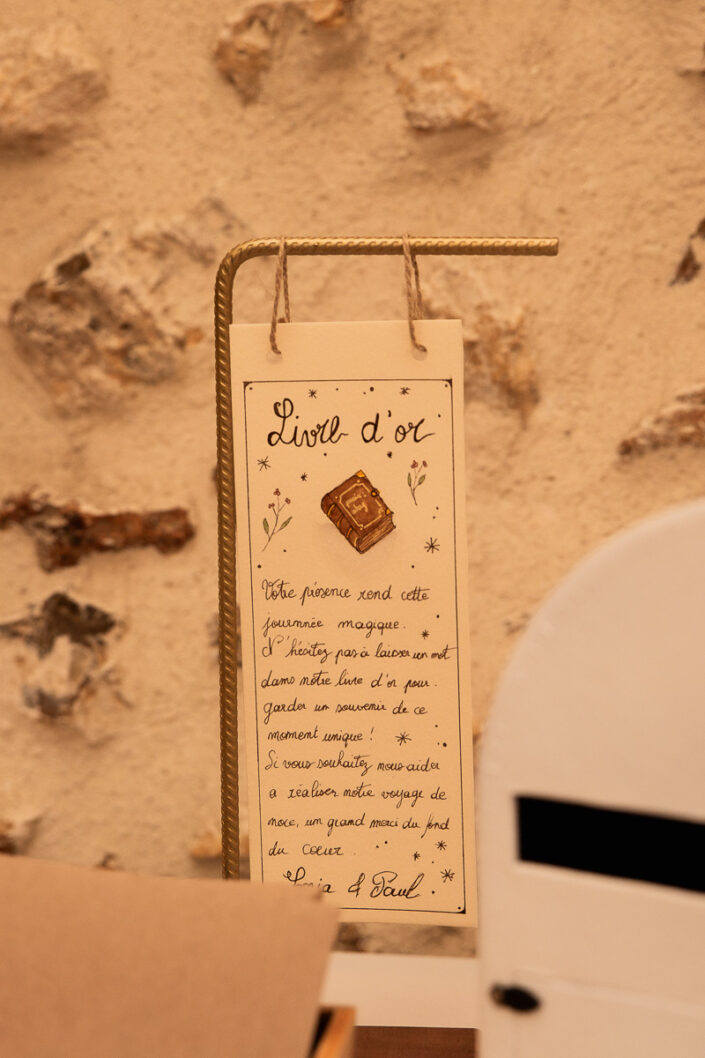 Livre d'or
Votre présence rend cette
journnée magique.
N'hésitez pas à laisser un mot
dans notre livre d'or pour
garder un souvenir de ce
moment unique !
Si vous souhaitez nous aider
a réaliser notre voyage de
noce, un grand merci du fond
du coeur.
& Paul